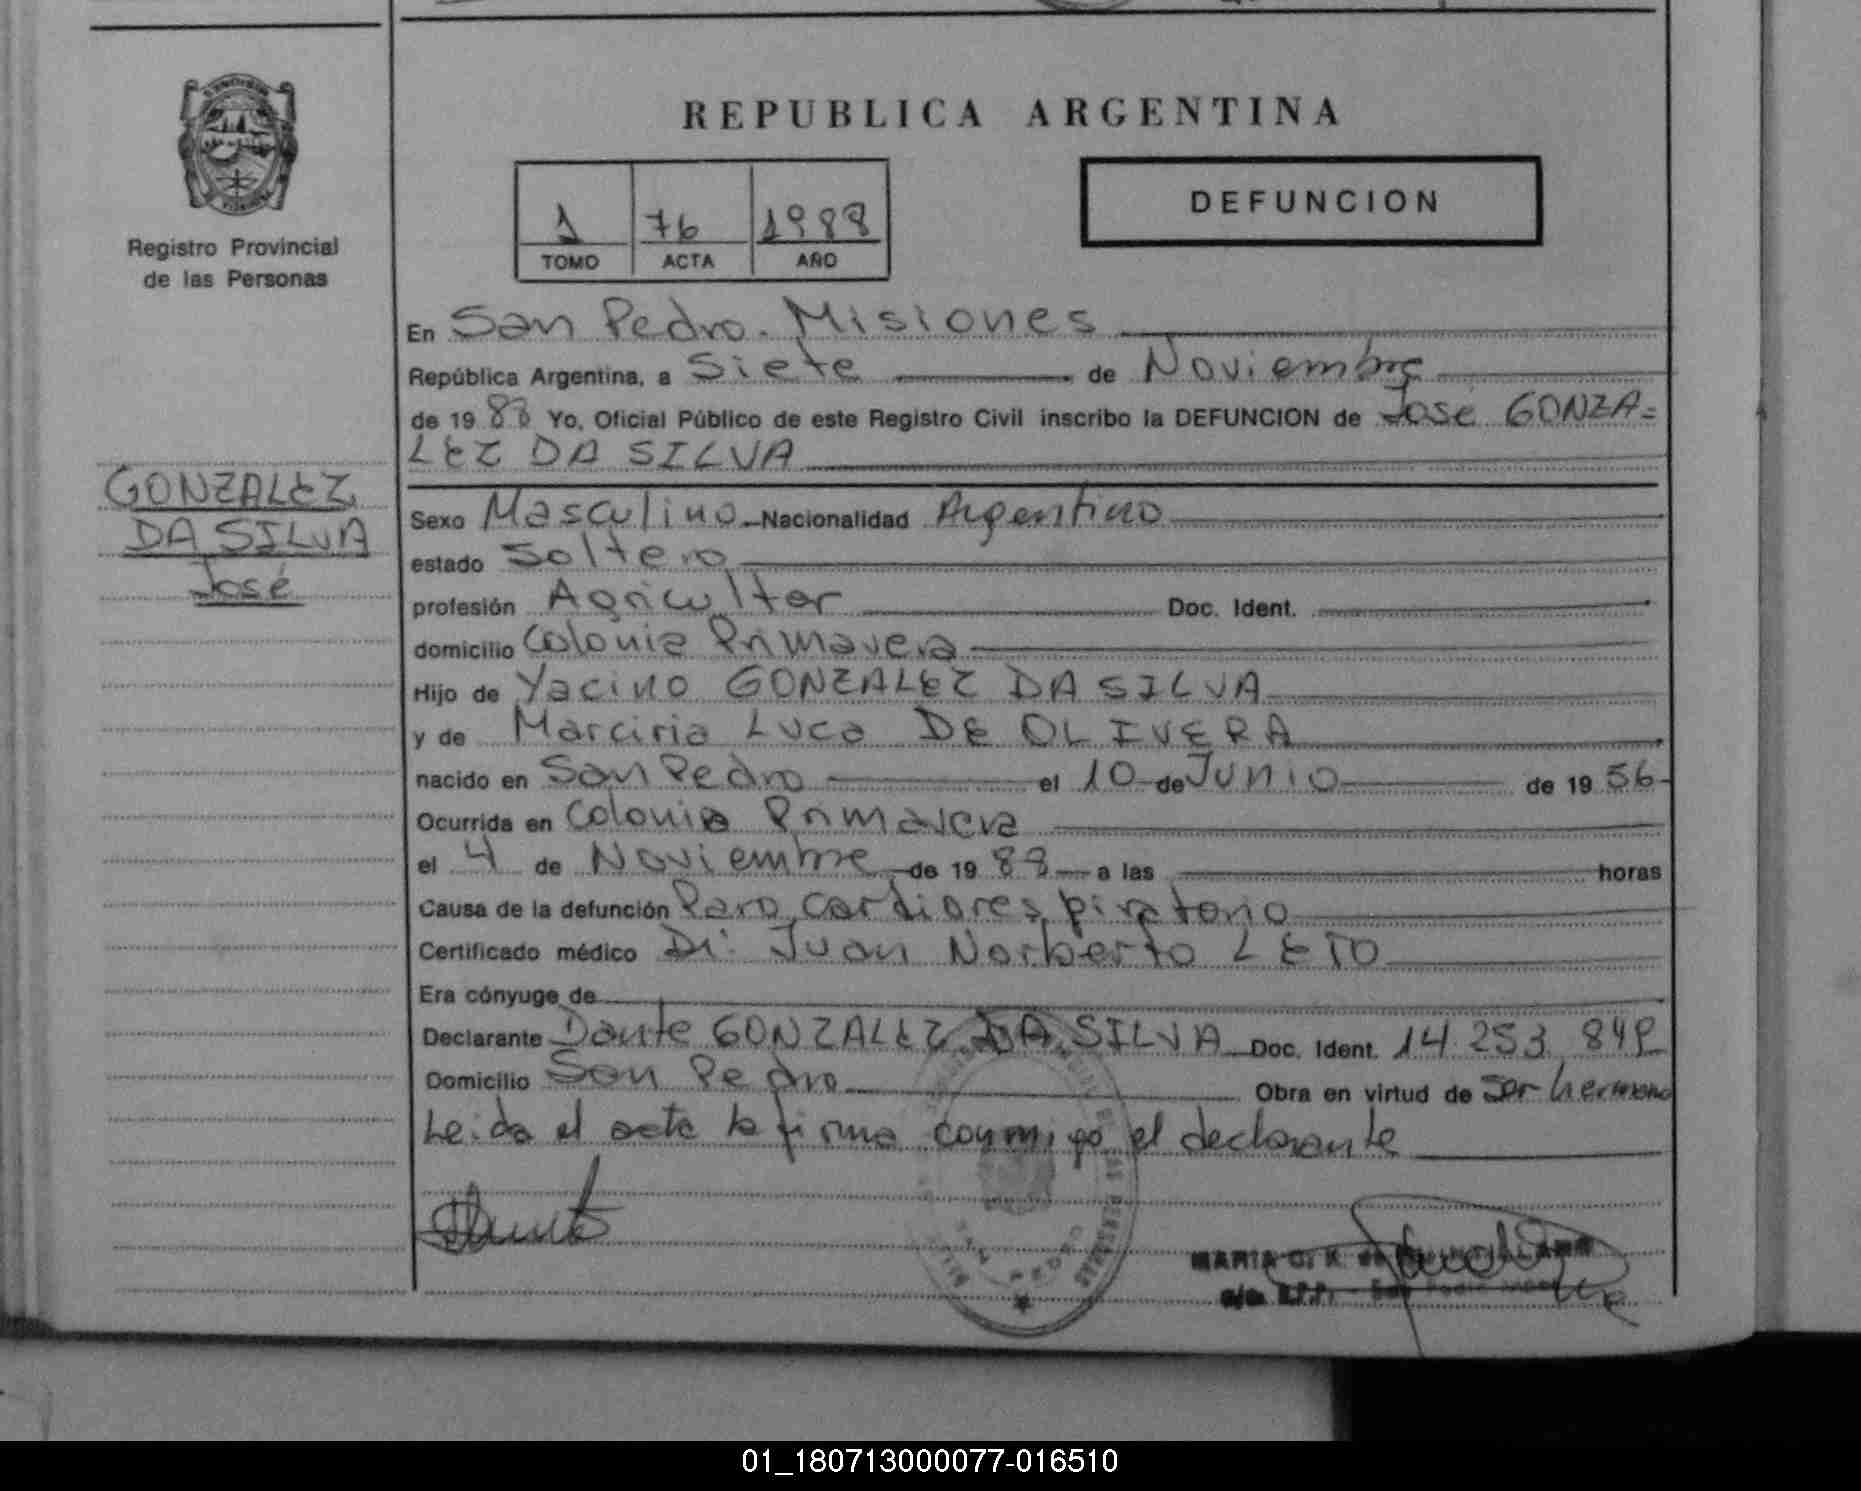 REPUBLICA ARGENTINA
Registro Provincial
de las Personas
1 76 1988
TOMO ACTA AÑO
DEFUNCION
En San Pedro - Misiones
República Argentina, a Siete de Noviembre
de 19 88 Yo, Oficial Público de este Registro Civil inscribo la DEFUNCION de José GONZA=
LEZ DA SILVA
GONZALEZ
DA SILVA
José
Sexo Masculino Nacionalidad Argentino
estado Soltero
profesión Agricultor Doc. Ident.
domicilio Colonia Primavera
Hijo de Yacino GONZALEZ DA SILVA
y de Marciria Luca DE OLIVERA
nacido en San Pedro el 10 de Junio de 19 56
Ocurrida en Colonia Primavera
el 4 de Noviembre de 19 88 a las horas
Causa de la defunción Paro cardiorespiratorio
Certificado médico Dr. Juan Norberto LETO
Era cónyuge de
Declarante Dante GONZALEZ DA SILVA Doc. Ident. 14 253 849
Domicilio San Pedro Obra en virtud de Ser hermano
Leida el acta la firma conmigo el declarante
MARIA
01_180713000077-016510